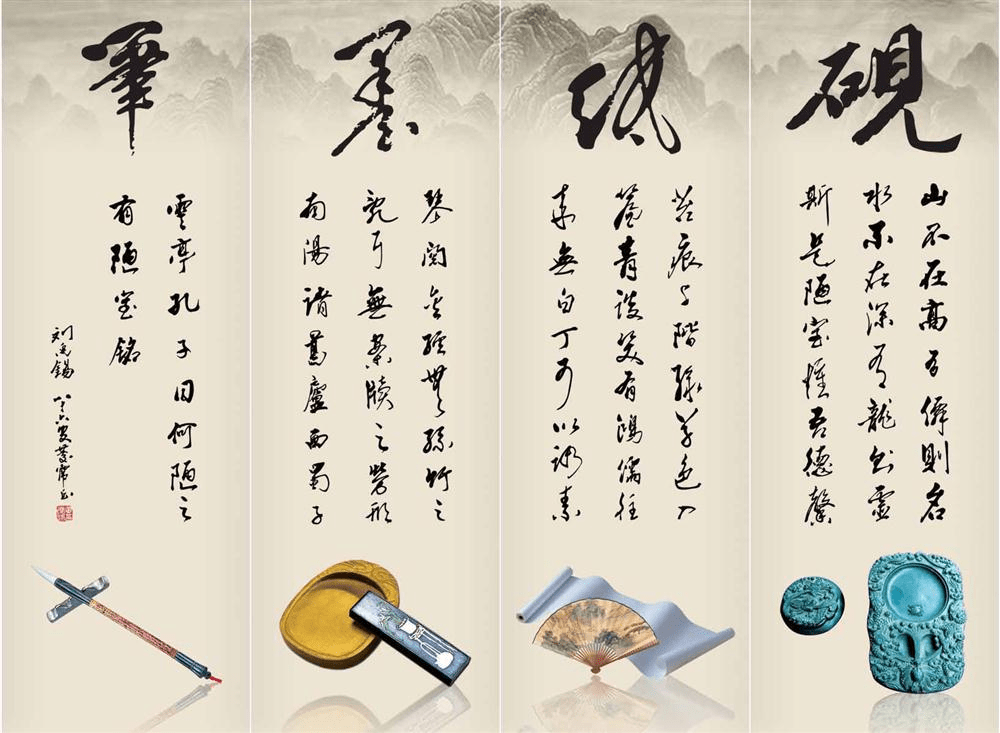 硯
山不在高有僊則名
水不在深有龍則靈
斯是陋室惟吾德馨
紙
苔痕上階綠草色入
簾青談笑有鴻儒往
來無白丁可以調素
墨
琴閱金經無絲竹之
亂耳無案牘之勞形
南陽諸葛廬西蜀子
筆
雲亭孔子曰何陋之
有陋室銘
刘禹錫 八十六叟